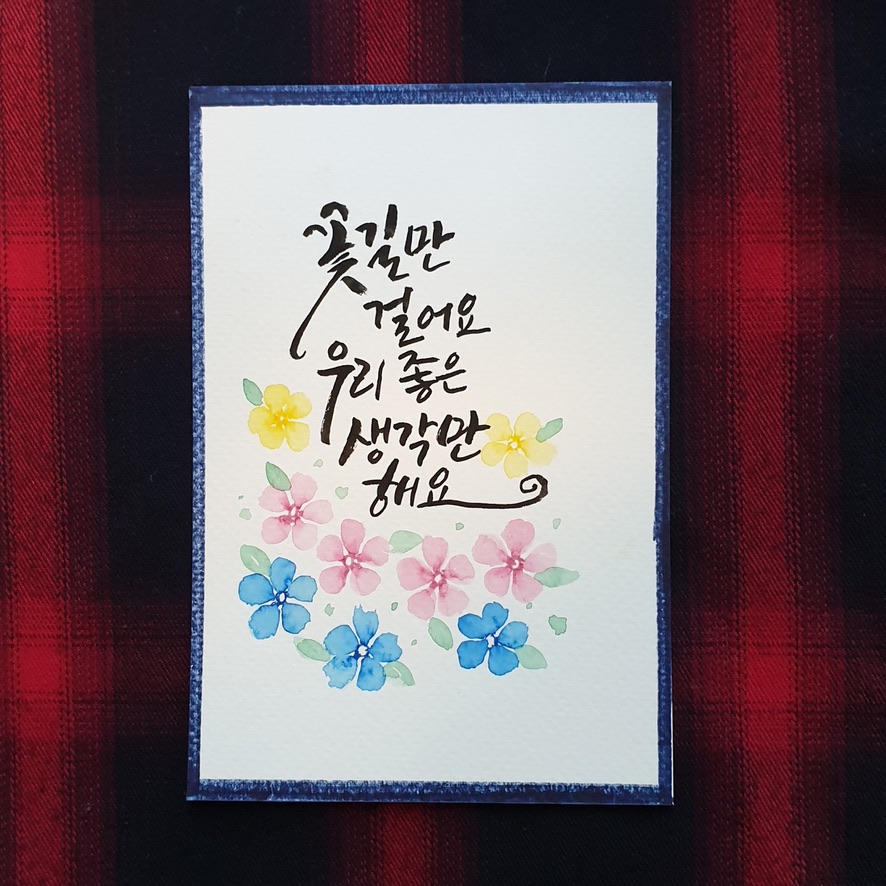 꽃길만
걸어요
우리 좋은
생각만
해요